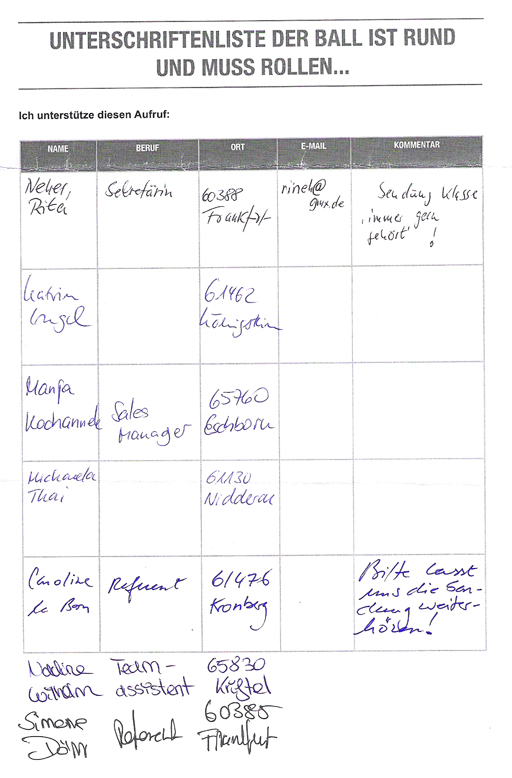 UNTERSCHRIFTENLISTE DER BALL IST RUND
UND MUSS ROLLEN...
Ich unterstütze diesen Aufruf:
NAME BERUF ORT E-MAIL KOMMENTAR
Neher, Sekretärin 60388 rineh@ Sendung klasse
Rita Frankfurt gmx.de "immer gern
gehört" !
Katrin 61462
Engel Königstein
Manja 65760
Kochannek Sales Eschborn
Manager
Michaela 61130
Thai Nidderau
Caroline Referent 61476 Bitte lasst
le Bon Kronberg uns die Sen-
dung weiter-
hören!
Nadine Team- 65830
Wilhelm assistent Kriftel
Simone Referent 60385
Frankfurt